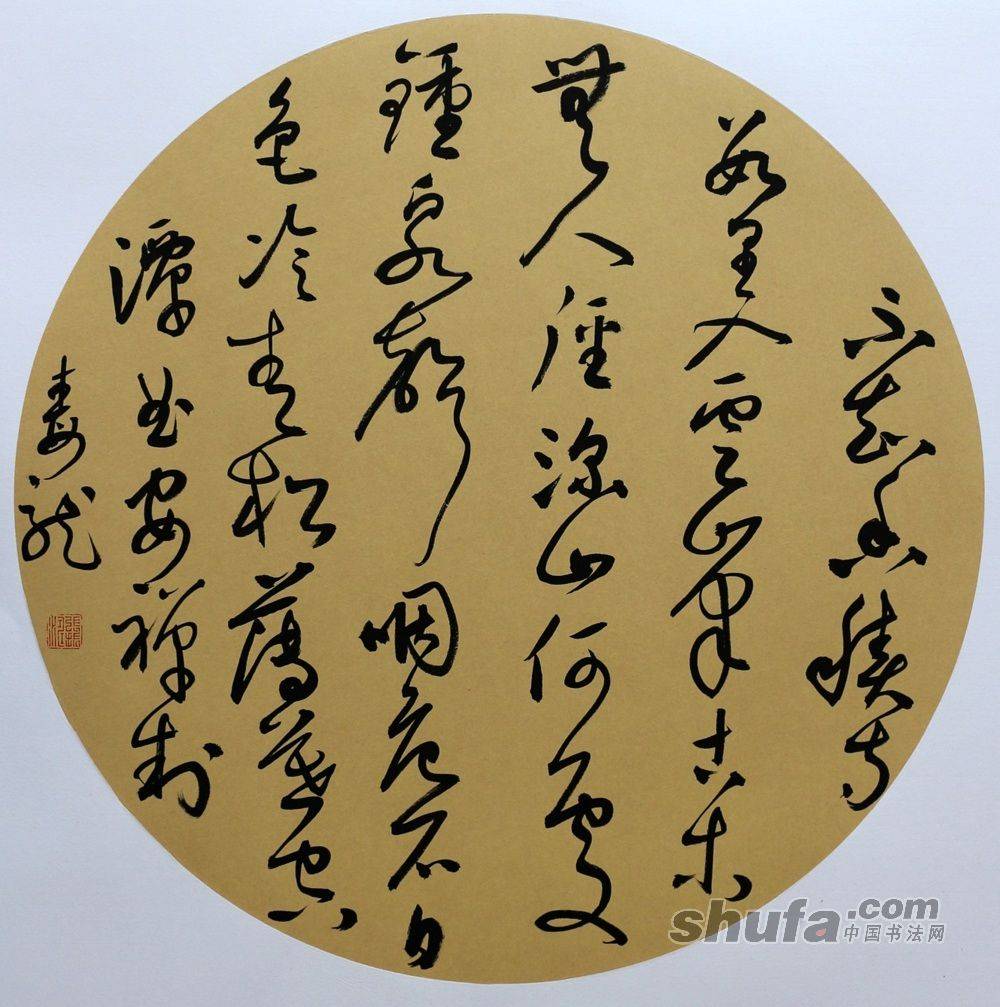 不知香積寺
數里入雲峯古木
無人徑深山何處
鍾泉聲咽危石日
色冷青松薄暮空
潭曲安禪制
毒龍
shufa.com
中国书法网